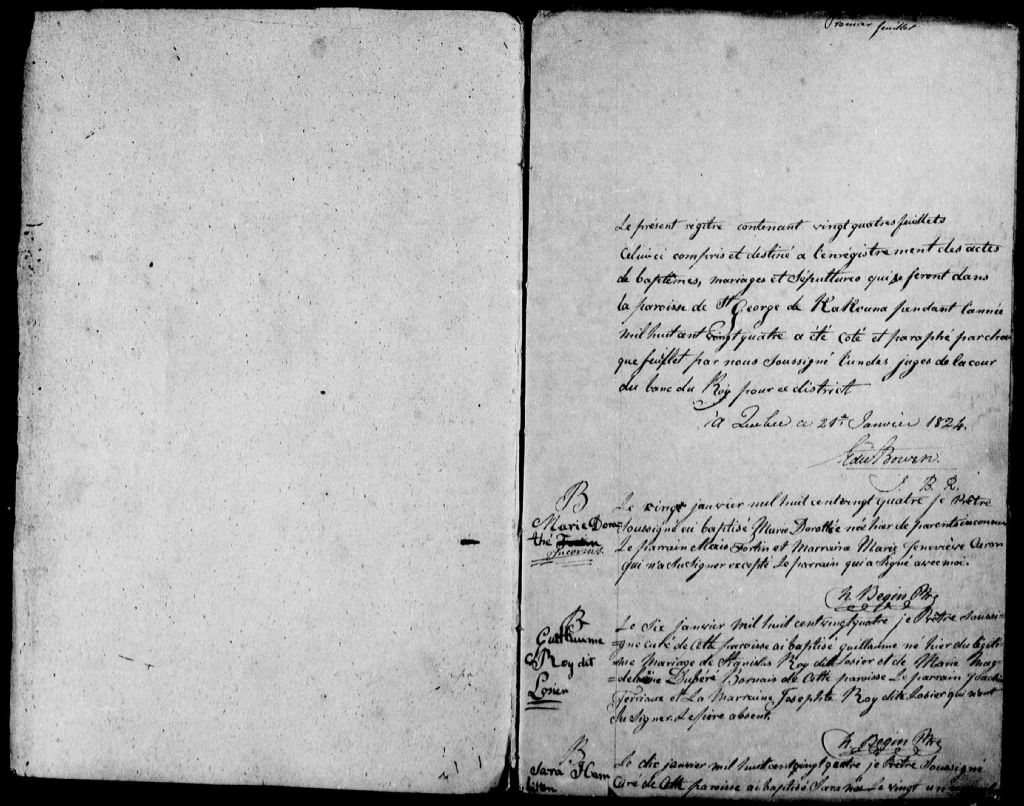 Premier feuillet
Le présent régitre contenant vingt quatres feuillets
Celui ci compris et destiné a l'enrégistrement des actes
de baptêmes, mariages et Sépultures qui se feront dans
la paroisse de St George de KaKouna pendant l'année
mil huit cent vingt quatre a été coté et paraphé par cha
que feuillet par nous Soussigné l'un des juges de la cour
du banc du Roy pour ce district
à Quebec ce 21e Janvier 1824.
Edw Bowen.
J. B. R.
B
Marie Doro
thé Fortin
Inconnus.
Le cinq janvier mil huit cent vingt quatre je Prêtre
Soussigné ai baptisé Marie Dorothée née hier de parents inconnus
Le parrain Alexis Fortin et Marraine Marie Geneviève Caron
qui n'a Su Signer excepté Le parrain qui a Signé avec moi.
N. Begin Ptre
B
Guillaume
Roy dit
Losier
Le Six janvier mil huit cent vingt quatre je Prêtre Soussi-
gné curé de cette paroisse ai baptisé guillaume né hier du légiti
me Mariage de Stanislas Roy dit Losier et de Marie Mag-
delaine Dubéré Bornais de Cette paroisse Le parrain Joachim
Terriaux et La Marraine Josephte Roy dit Losier qui n'ont
Su Signer. Le père absent.
N. Begin Ptre
B
Sara Ham
ilton
Le dix janvier mil huit cent vingt quatre je Prêtre Soussigné
Curé de Cette paroisse ai baptisé Sara née Le vingt un